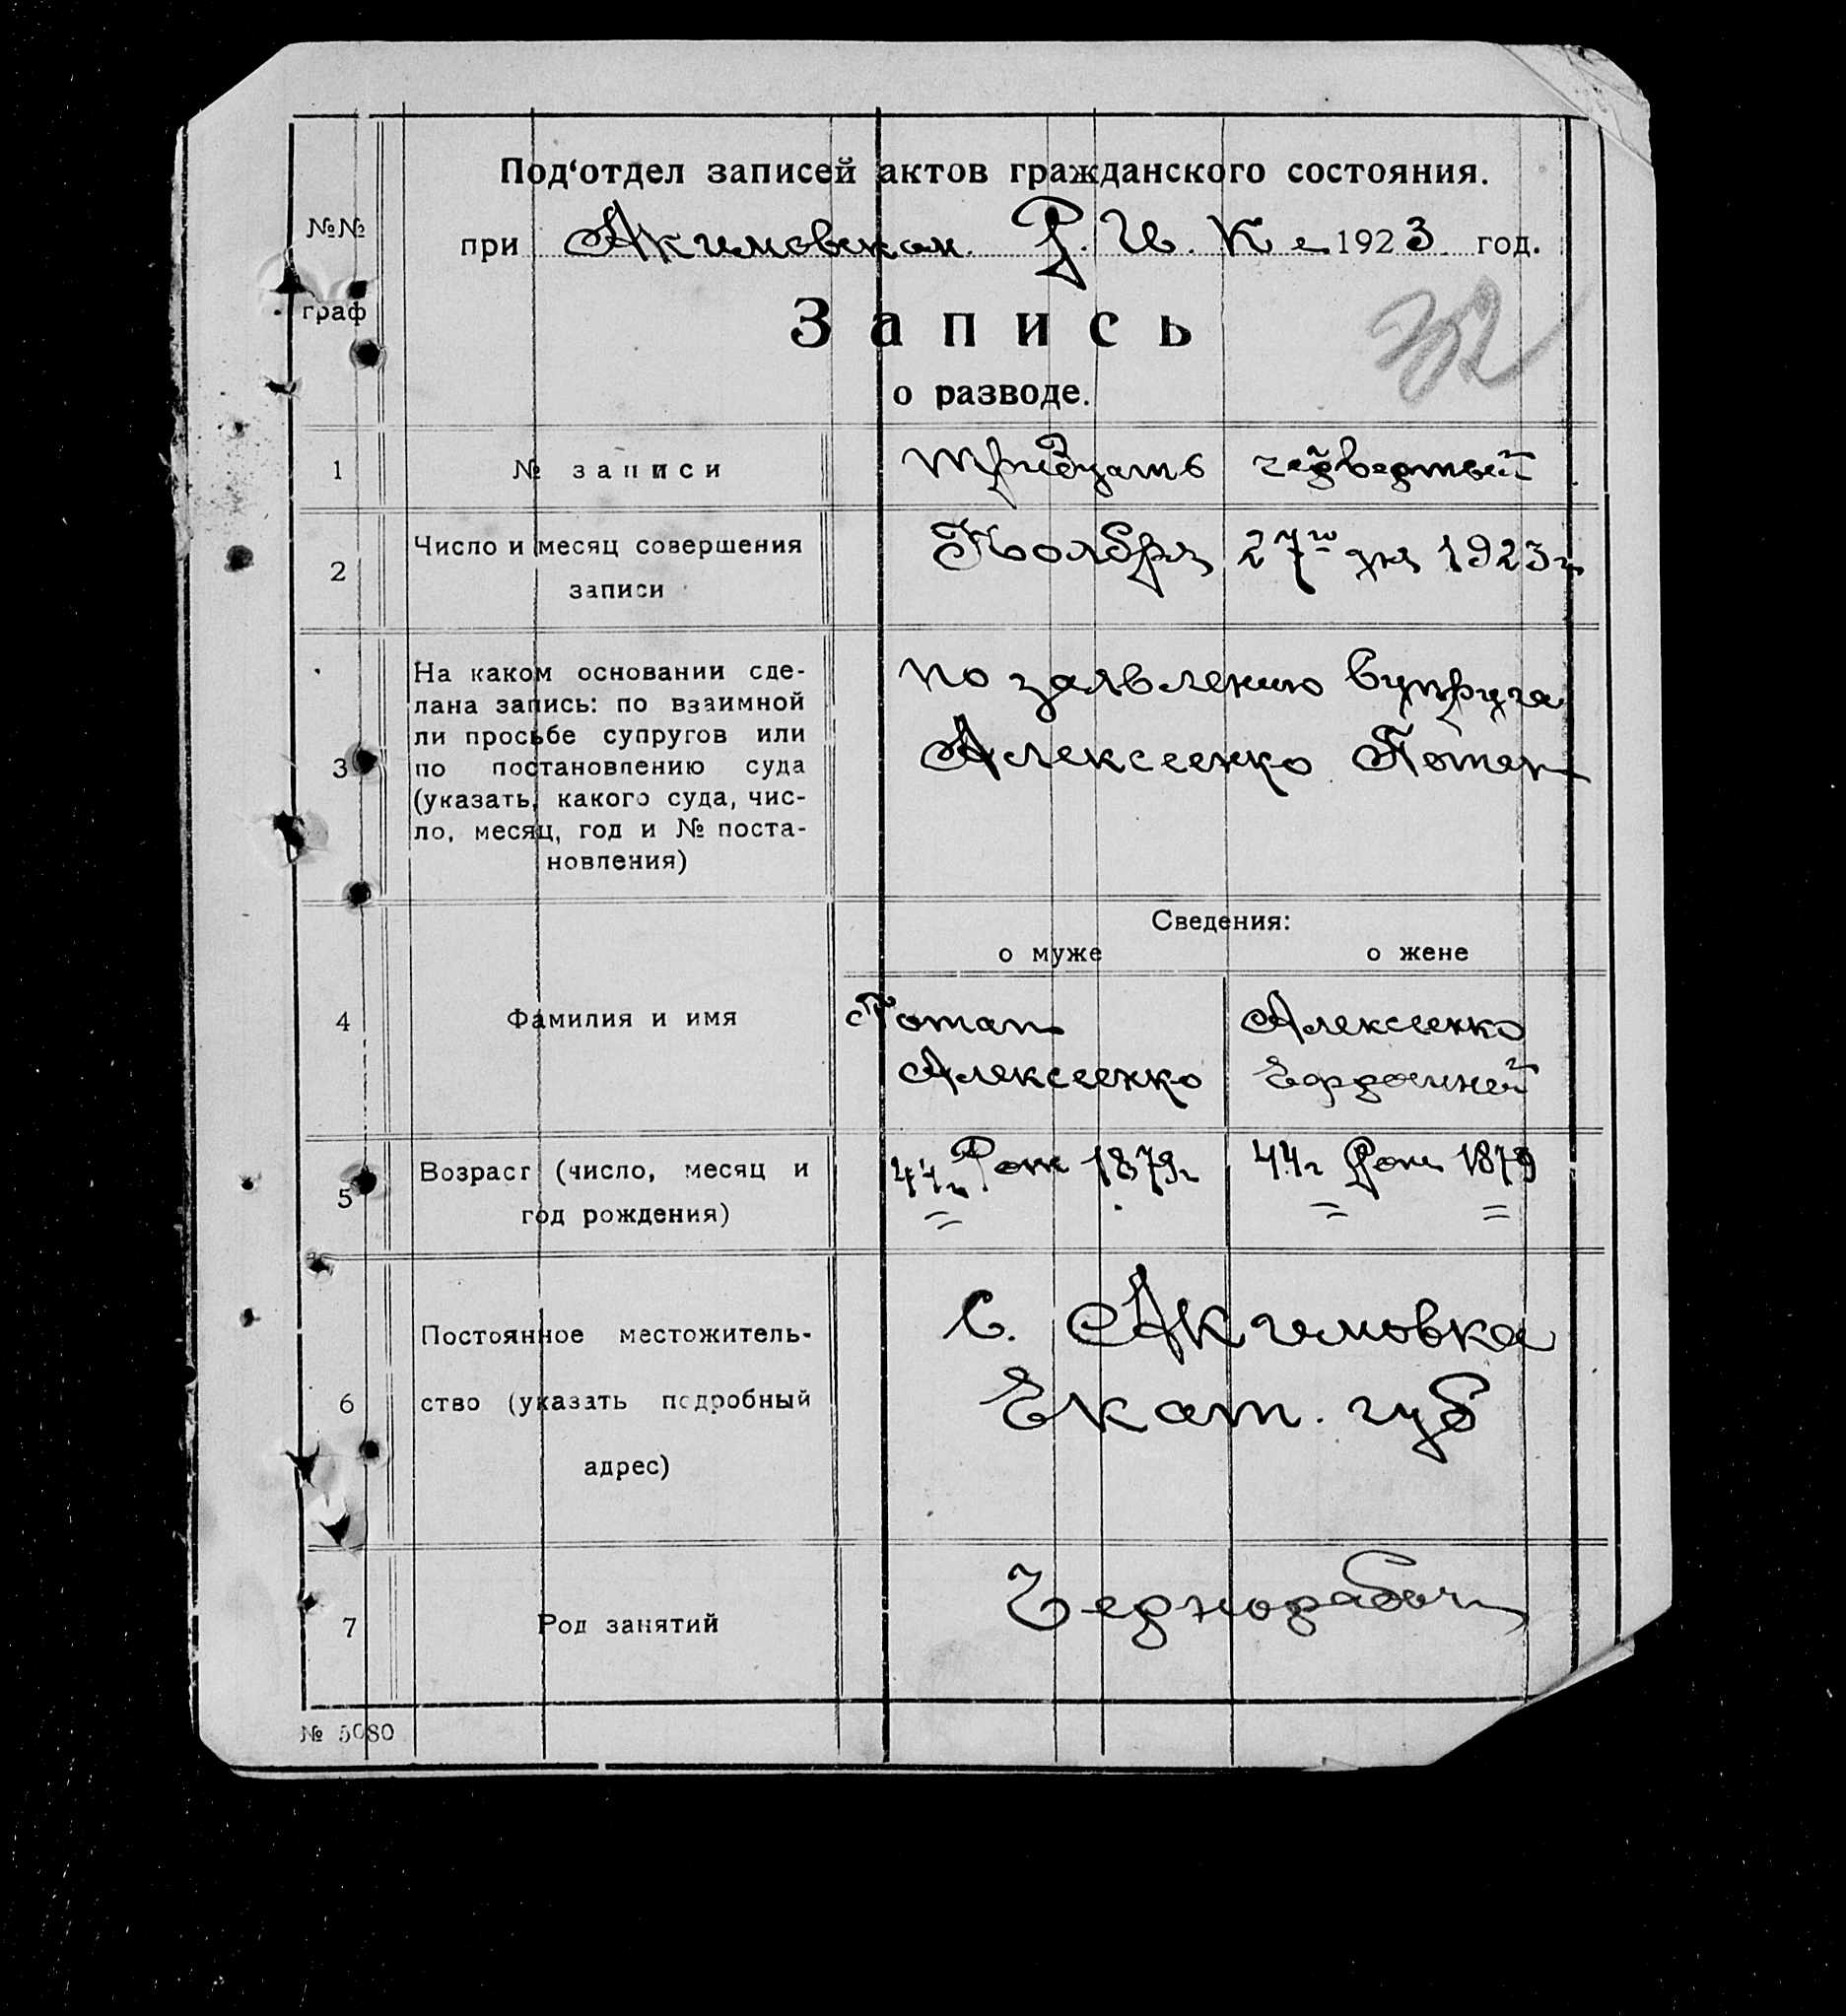 Под‘отдел записей актов гражданского состояния.
№№
при Акимовском Р. И. К е 1923 год.
граф
Запись
о разводе.
1 № записи тридцать четвертый
2 Число и месяц совершения Ноября 27го дня 1923 г
записи
3 На каком основании сде-
лана запись: по взаимной
ли просьбе супругов или
по постановлению суда
(указать, какого суда, чис-
ло, месяц, год и № поста-
новления)
по заявлению супруга
Алексеенко Потап
Сведения:
о муже о жене
4 Фамилия и имя
Потап
Алексеенко
Алексеенко
5 Возраст (число, месяц и
год рождения)
44 г Рож 1879 г 44 г Рож 1879
6 Постоянное местожитель-
ство (указать подробный
адрес)
С. Акимовка
Екат. губ
7 Род занятий Чернорабоч
№ 5080